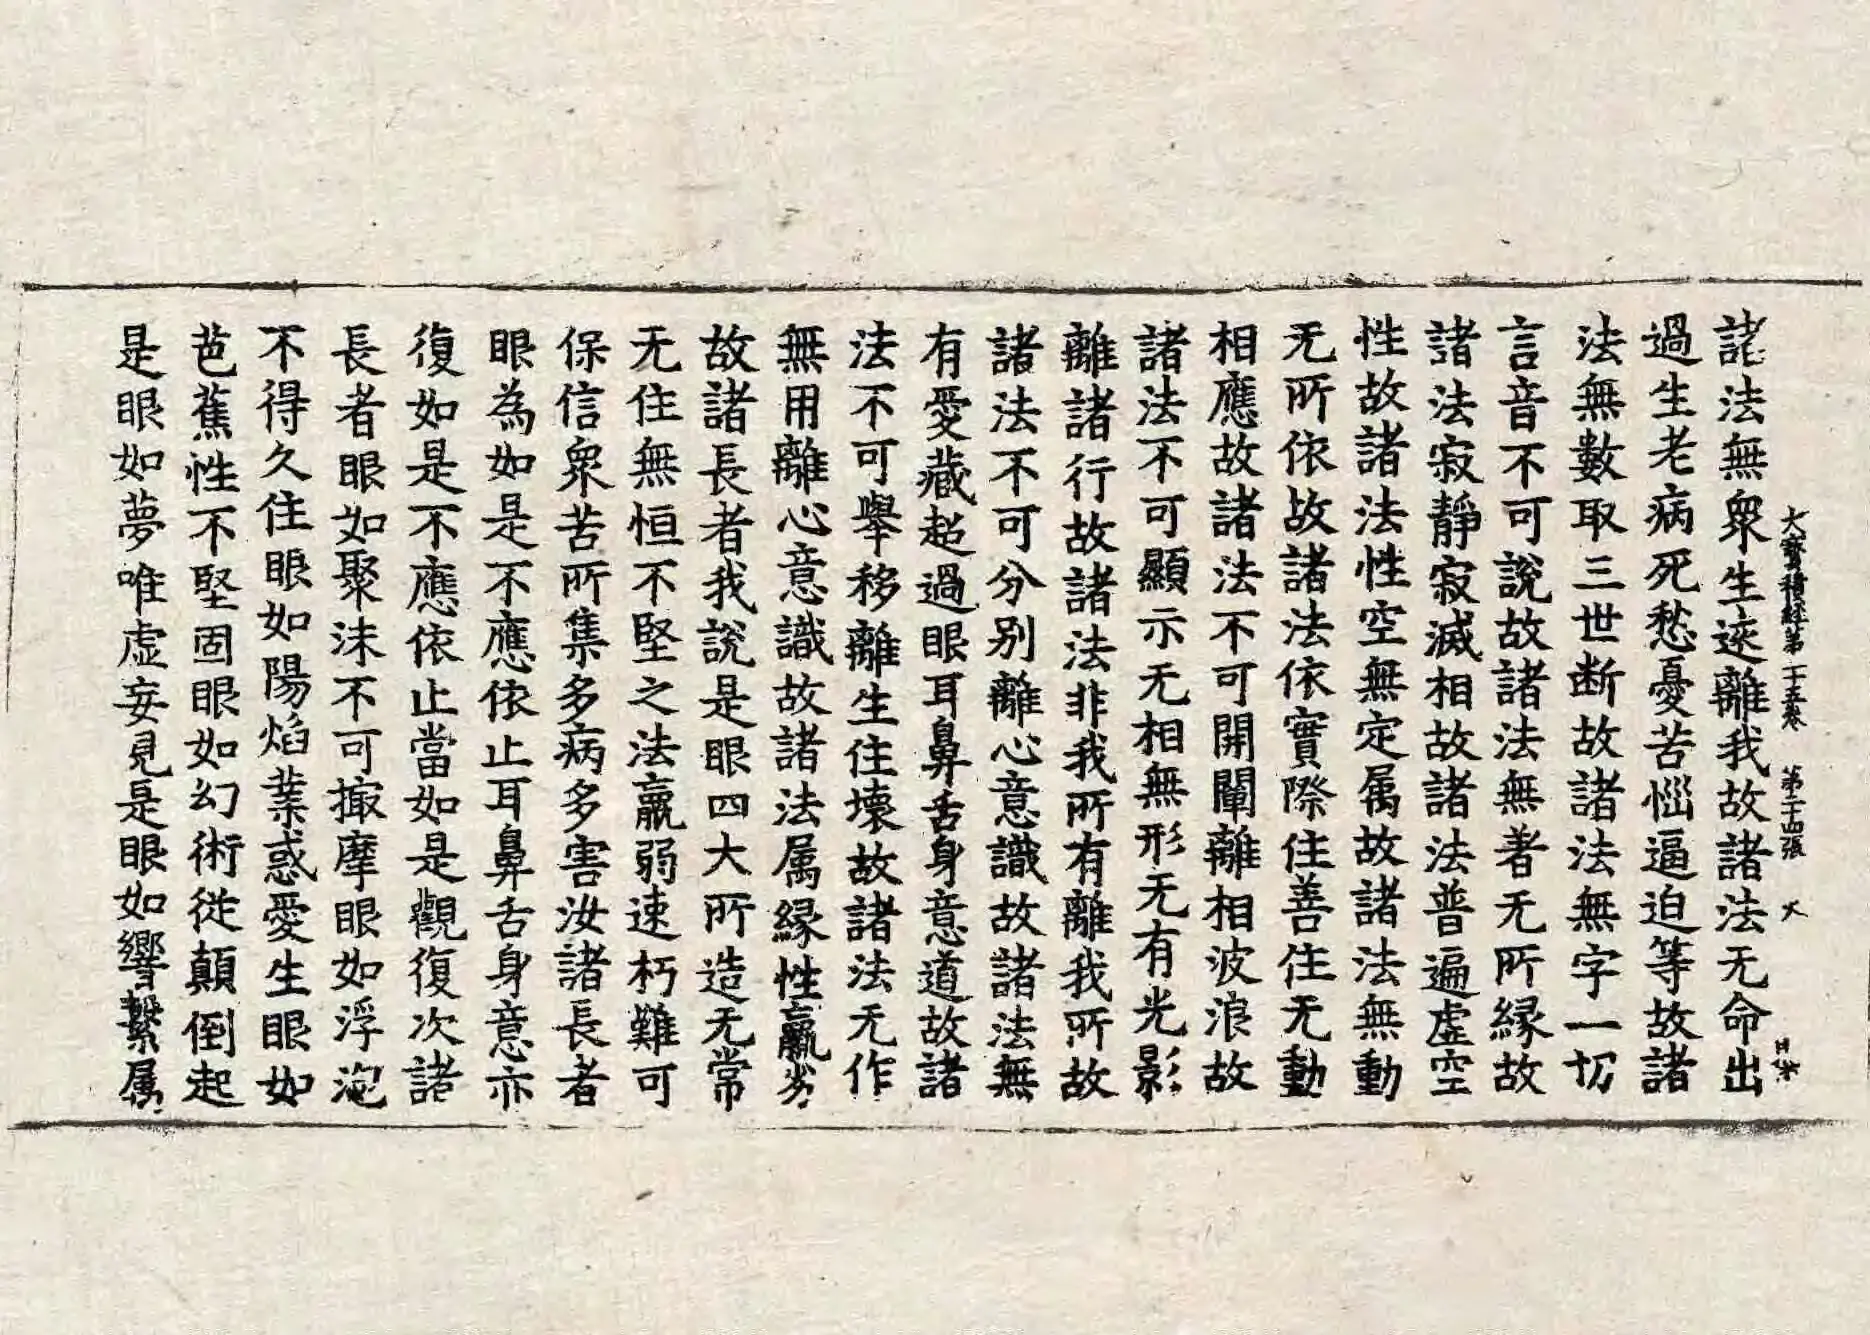 大寶積經第二十五卷 第二十四張 火
諸法無衆生遠離我故諸法无命出
過生老病死愁憂苦惱逼迫等故諸
法無數取三世断故諸法無字一切
言音不可說故諸法無著无所緣故
諸法寂靜寂滅相故諸法普遍虛空
性故諸法性空無定属故諸法無動
无所依故諸法依實際住善住无動
相應故諸法不可開闡離相波浪故
諸法不可顯示无相無形无有光影
離諸行故諸法非我所有離我所故
諸法不可分别離心意識故諸法無
有愛藏超過眼耳鼻舌身意道故諸
法不可舉移離生住壞故諸法无作
無用離心意識故諸法属緣性羸劣
故諸長者我說是眼四大所造无常
无住無恒不堅之法羸弱速朽難可
保信衆苦所集多病多害汝諸長者
眼為如是不應依止耳鼻舌身意亦
復如是不應依止當如是觀復次諸
長者眼如聚沫不可撮摩眼如浮泡
不得久住眼如陽焰業惑愛生眼如
芭蕉性不堅固眼如幻術從顛倒起
是眼如夢唯虛妄見是眼如響繫属